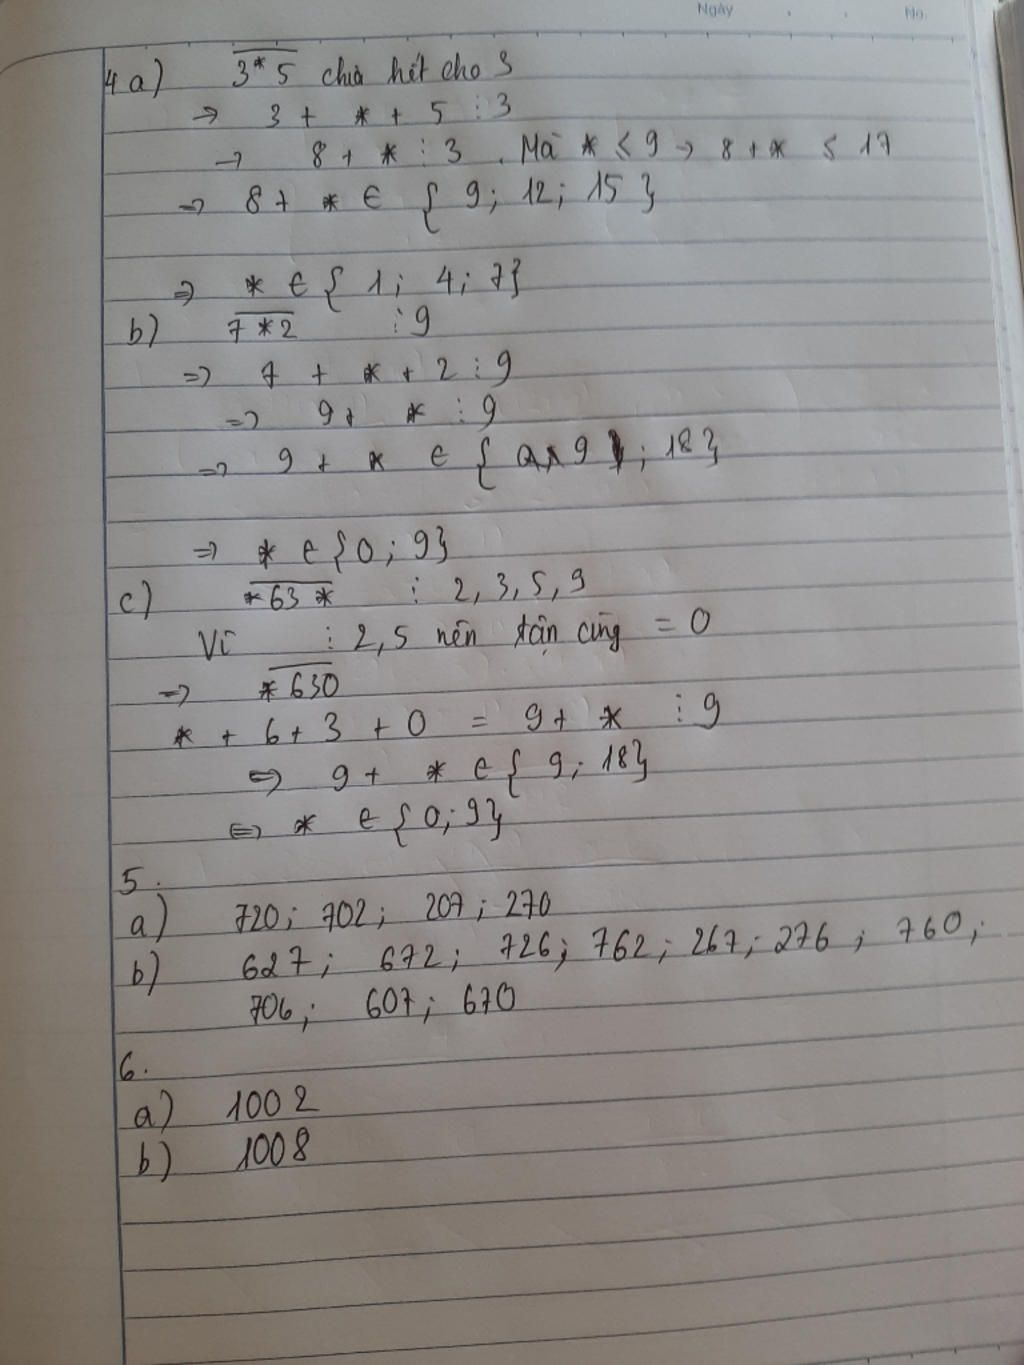 Ngày . . No.
4 a) 3*5 chia hết cho 3
→ 3 + * + 5 ⋮ 3
→ 8 + * ⋮ 3 . Mà * ≤ 9 → 8 + * ≤ 17
⇒ 8 + * ∈ { 9; 12; 15 }
⇒ * ∈ { 1; 4; 7}
b) 7 * 2 ⋮ 9
⇒ 7 + * + 2 ⋮ 9
⇒ 9 + * ⋮ 9
⇒ 9 + * ∈ { 9 ; 18 }
⇒ * ∈ {0 ; 9}
c) *63 * ⋮ 2, 3, 5, 9
Vì ⋮ 2, 5 nên tận cùng = 0
⇒ * 630
* + 6 + 3 + 0 = 9 + * ⋮ 9
⇔ 9 + * ∈ { 9; 18}
⇔ * ∈ {0; 9}
5.
a) 720; 702; 207; 270
b) 627; 672; 726; 762; 267; 276 ; 760;
706; 607; 670
6.
a) 1002
b) 1008